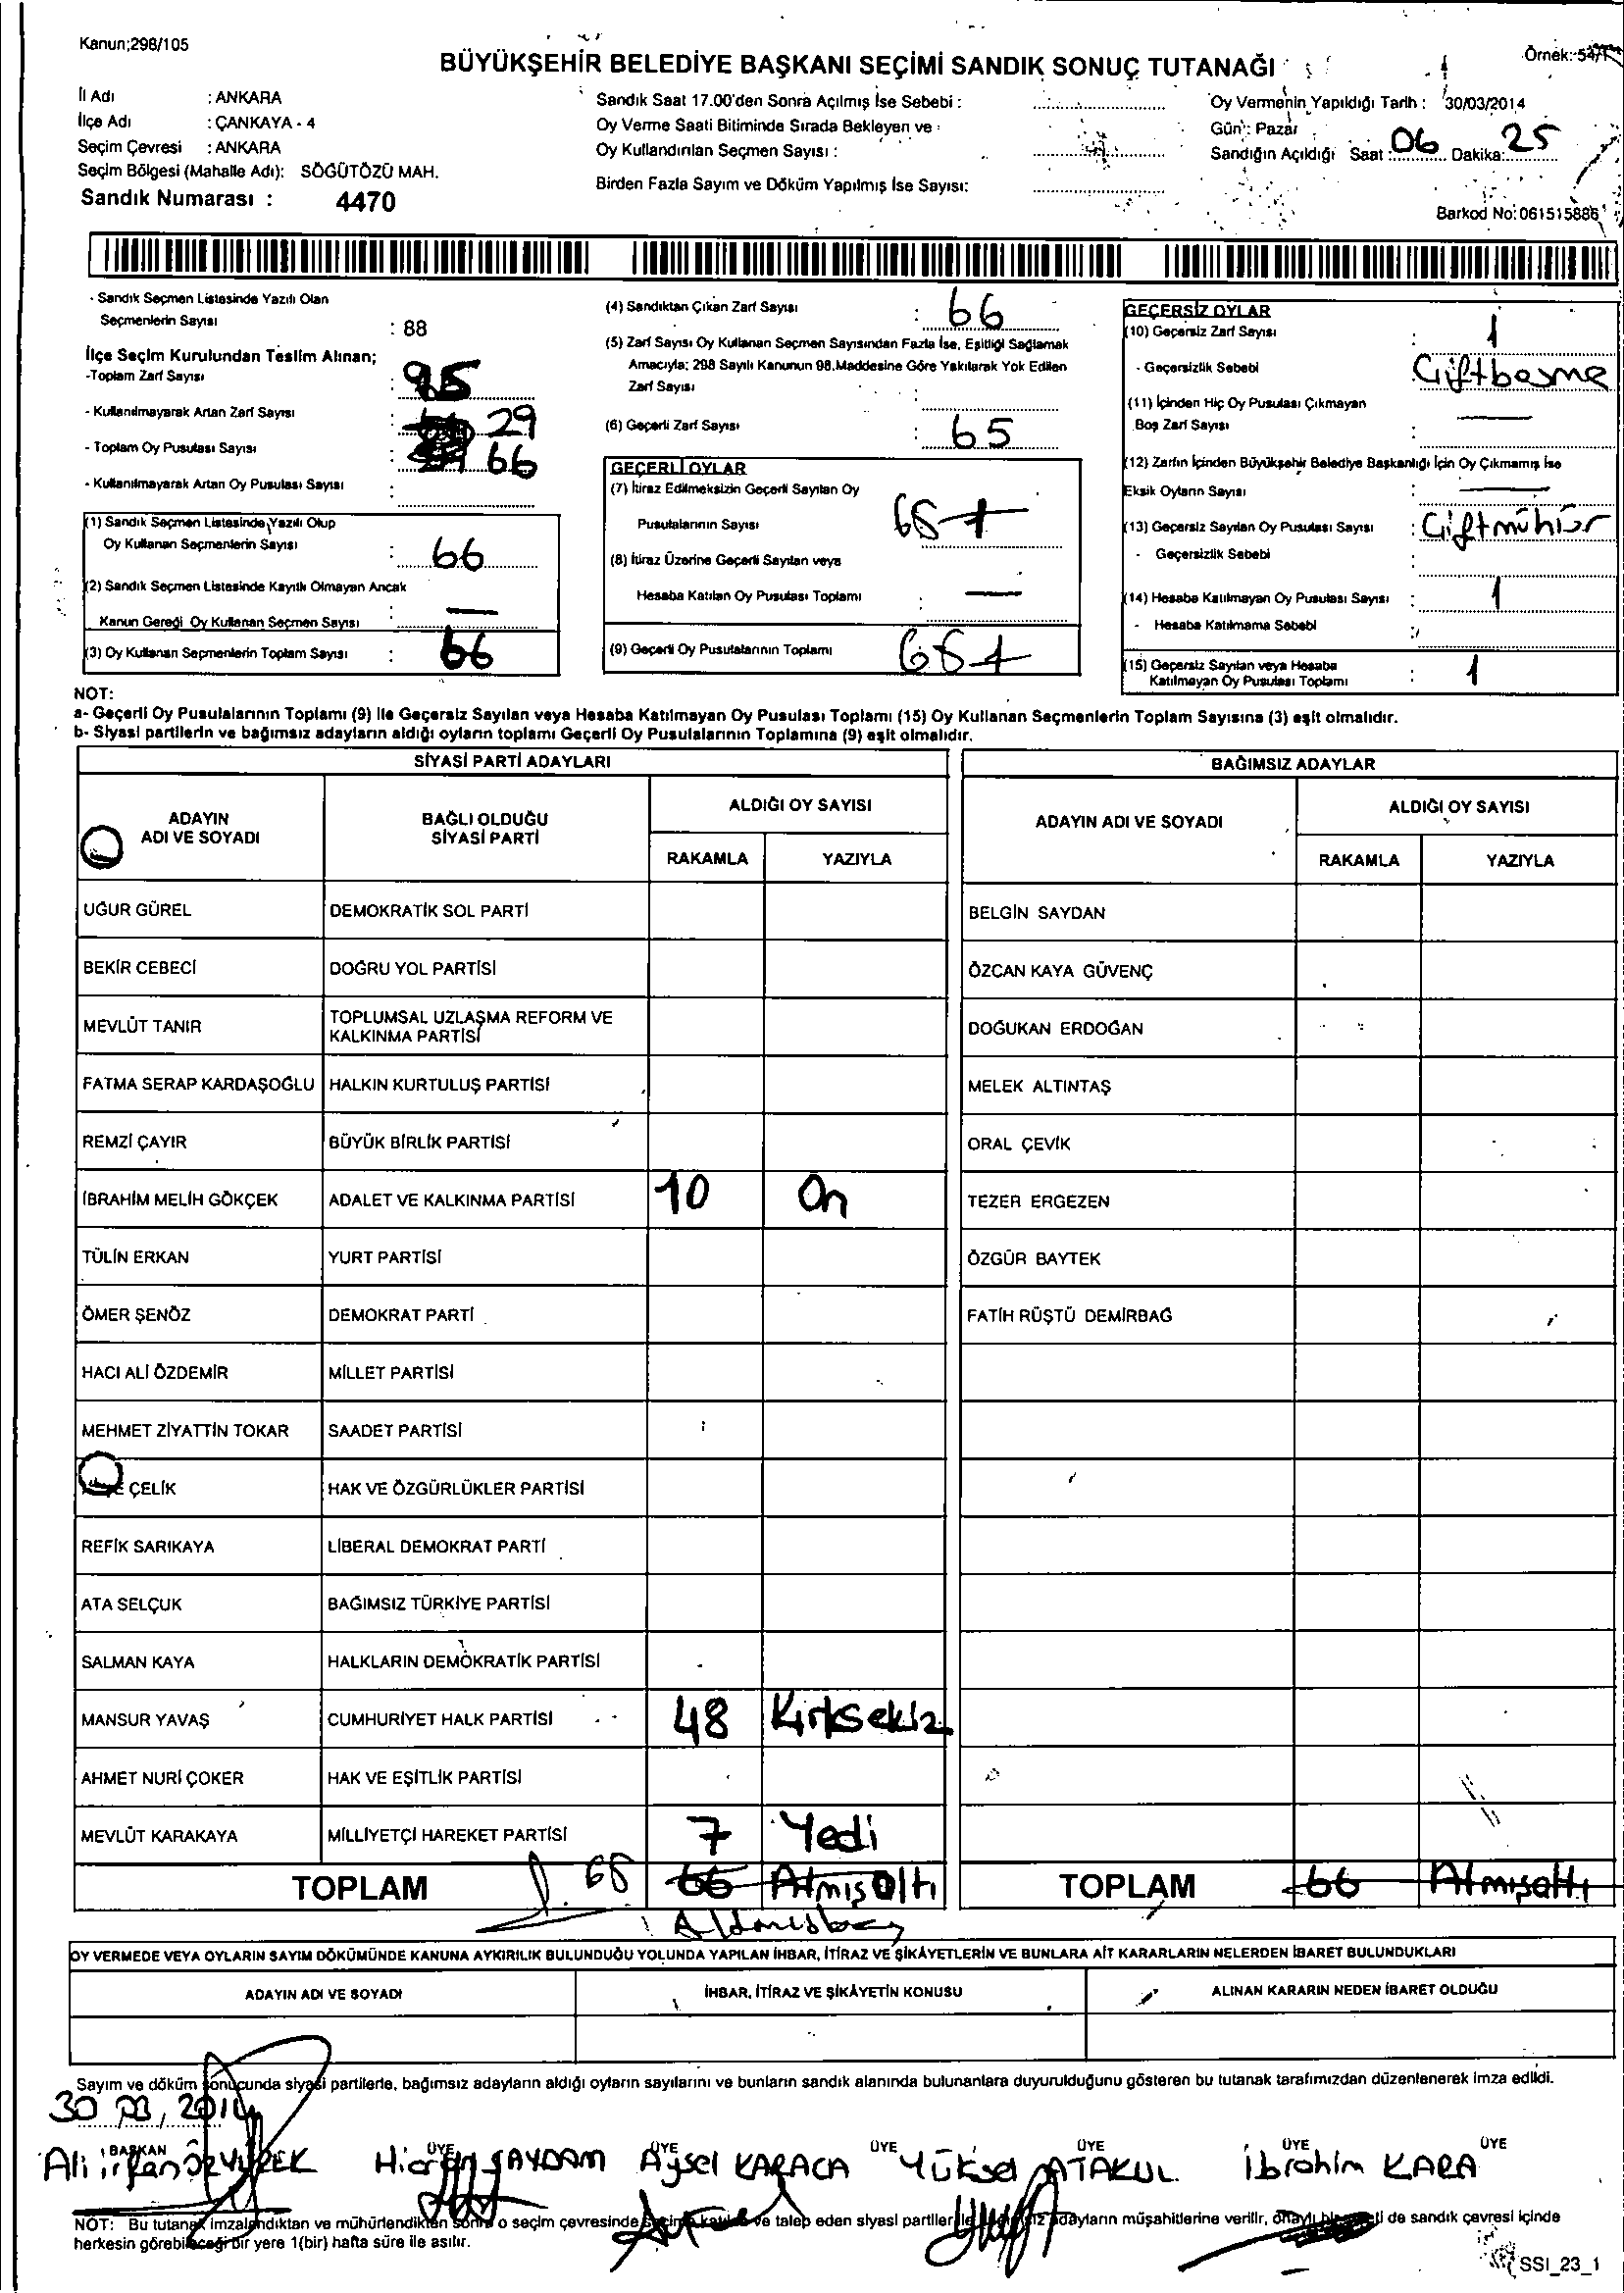 Kanun;298/105
BÜYÜKŞEHİR BELEDİYE BAŞKANI SEÇİMİ SANDIK SONUÇ TUTANAĞI
Örnek: 54/1
İl Adı : ANKARA
İlçe Adı : ÇANKAYA - 4
Seçim Çevresi : ANKARA
Seçim Bölgesi (Mahalle Adı): SÖĞÜTÖZÜ MAH.
Sandık Numarası : 4470
Sandık Saat 17.00'den Sonra Açılmış İse Sebebi :
Oy Verme Saati Bitiminde Sırada Bekleyen ve :
Oy Kullandırılan Seçmen Sayısı :
Birden Fazla Sayım ve Döküm Yapılmış İse Sayısı:
Oy Vermenin Yapıldığı Tarih : 30/03/2014
Gün : Pazar
Sandığın Açıldığı Saat : 06 Dakika: 25
Barkod No: 061515886
- Sandık Seçmen Listesinde Yazılı Olan
Seçmenlerin Sayısı : 88
İlçe Seçim Kurulundan Teslim Alınan;
-Toplam Zarf Sayısı : 95
- Kullanılmayarak Artan Zarf Sayısı : 29
- Toplam Oy Pusulası Sayısı : 66
- Kullanılmayarak Artan Oy Pusulası Sayısı :
(1) Sandık Seçmen Listesinde Yazılı Olup
Oy Kullanan Seçmenlerin Sayısı : 66
(2) Sandık Seçmen Listesinde Kayıtlı Olmayan Ancak
Kanun Gereği Oy Kullanan Seçmen Sayısı : —
(3) Oy Kullanan Seçmenlerin Toplam Sayısı : 66
(4) Sandıktan Çıkan Zarf Sayısı : 66
(5) Zarf Sayısı Oy Kullanan Seçmen Sayısından Fazla İse, Eşitliği Sağlamak
Amacıyla; 298 Sayılı Kanunun 98.Maddesine Göre Yakılarak Yok Edilen
Zarf Sayısı :
(6) Geçerli Zarf Sayısı : 65
GEÇERLİ OYLAR
(7) İtiraz Edilmeksizin Geçerli Sayılan Oy
Pusulalarının Sayısı 65
(8) İtiraz Üzerine Geçerli Sayılan veya
Hesaba Katılan Oy Pusulası Toplamı : —
(9) Geçerli Oy Pusulalarının Toplamı 65
GEÇERSİZ OYLAR
(10) Geçersiz Zarf Sayısı : 1
- Geçersizlik Sebebi Çiftbasma
(11) İçinden Hiç Oy Pusulası Çıkmayan
Boş Zarf Sayısı : —
(12) Zarfın İçinden Büyükşehir Belediye Başkanlığı İçin Oy Çıkmamış İse
Eksik Oyların Sayısı : —
(13) Geçersiz Sayılan Oy Pusulası Sayısı : Çiftmühür
- Geçersizlik Sebebi
(14) Hesaba Katılmayan Oy Pusulası Sayısı : 1
- Hesaba Katılmama Sebebi :
(15) Geçersiz Sayılan veya Hesaba
Katılmayan Oy Pusulası Toplamı : 1
NOT:
a- Geçerli Oy Pusulalarının Toplamı (9) İle Geçersiz Sayılan veya Hesaba Katılmayan Oy Pusulası Toplamı (15) Oy Kullanan Seçmenlerin Toplam Sayısına (3) eşit olmalıdır.
b- Siyasi partilerin ve bağımsız adayların aldığı oyların toplamı Geçerli Oy Pusulalarının Toplamına (9) eşit olmalıdır.
SİYASİ PARTİ ADAYLARI
ADAYIN ADI VE SOYADI
BAĞLI OLDUĞU SİYASİ PARTİ
ALDIĞI OY SAYISI
RAKAMLA YAZIYLA
UĞUR GÜREL DEMOKRATİK SOL PARTİ
BEKİR CEBECİ DOĞRU YOL PARTİSİ
MEVLÜT TANIR TOPLUMSAL UZLAŞMA REFORM VE
KALKINMA PARTİSİ
FATMA SERAP KARDAŞOĞLU HALKIN KURTULUŞ PARTİSİ
REMZİ ÇAYIR BÜYÜK BİRLİK PARTİSİ
İBRAHİM MELİH GÖKÇEK ADALET VE KALKINMA PARTİSİ 10 On
TÜLİN ERKAN YURT PARTİSİ
ÖMER ŞENÖZ DEMOKRAT PARTİ
HACI ALİ ÖZDEMİR MİLLET PARTİSİ
MEHMET ZİYATTİN TOKAR SAADET PARTİSİ
ÇELİK HAK VE ÖZGÜRLÜKLER PARTİSİ
REFİK SARIKAYA LİBERAL DEMOKRAT PARTİ
ATA SELÇUK BAĞIMSIZ TÜRKİYE PARTİSİ
SALMAN KAYA HALKLARIN DEMOKRATİK PARTİSİ
MANSUR YAVAŞ CUMHURİYET HALK PARTİSİ 48 Kırksekiz
AHMET NURİ ÇOKER HAK VE EŞİTLİK PARTİSİ
MEVLÜT KARAKAYA MİLLİYETÇİ HAREKET PARTİSİ 7 Yedi
TOPLAM 65 66 Atmışaltı
BAĞIMSIZ ADAYLAR
ADAYIN ADI VE SOYADI
ALDIĞI OY SAYISI
RAKAMLA YAZIYLA
BELGİN SAYDAN
ÖZCAN KAYA GÜVENÇ
DOĞUKAN ERDOĞAN
MELEK ALTINTAŞ
ORAL ÇEVİK
TEZER ERGEZEN
ÖZGÜR BAYTEK
FATİH RÜŞTÜ DEMİRBAĞ
TOPLAM 66 Atmışaltı
OY VERMEDE VEYA OYLARIN SAYIM DÖKÜMÜNDE KANUNA AYKIRILIK BULUNDUĞU YOLUNDA YAPILAN İHBAR, İTİRAZ VE ŞİKÂYETLERİN VE BUNLARA AİT KARARLARIN NELERDEN İBARET BULUNDUKLARI
ADAYIN ADI VE SOYADI İHBAR, İTİRAZ VE ŞİKÂYETİN KONUSU ALINAN KARARIN NEDEN İBARET OLDUĞU
Sayım ve döküm sonucunda siyasi partilerle, bağımsız adayların aldığı oyların sayılarını ve bunların sandık alanında bulunanlara duyurulduğunu gösteren bu tutanak tarafımızdan düzenlenerek imza edildi.
30 03, 2014
BAŞKAN ÜYE ÜYE ÜYE ÜYE ÜYE ÜYE
Ali irfan SAYDAM Aysel KARACA Yüksel ATAKUL İbrahim KARA
NOT: Bu tutanak imzalandıktan ve mühürlendikten sonra o seçim çevresinde ve talep eden siyasi partiler ile adayların müşahitlerine verilir, de sandık çevresi içinde
herkesin görebileceği bir yere 1(bir) hafta süre ile asılır.
SSI_23_1